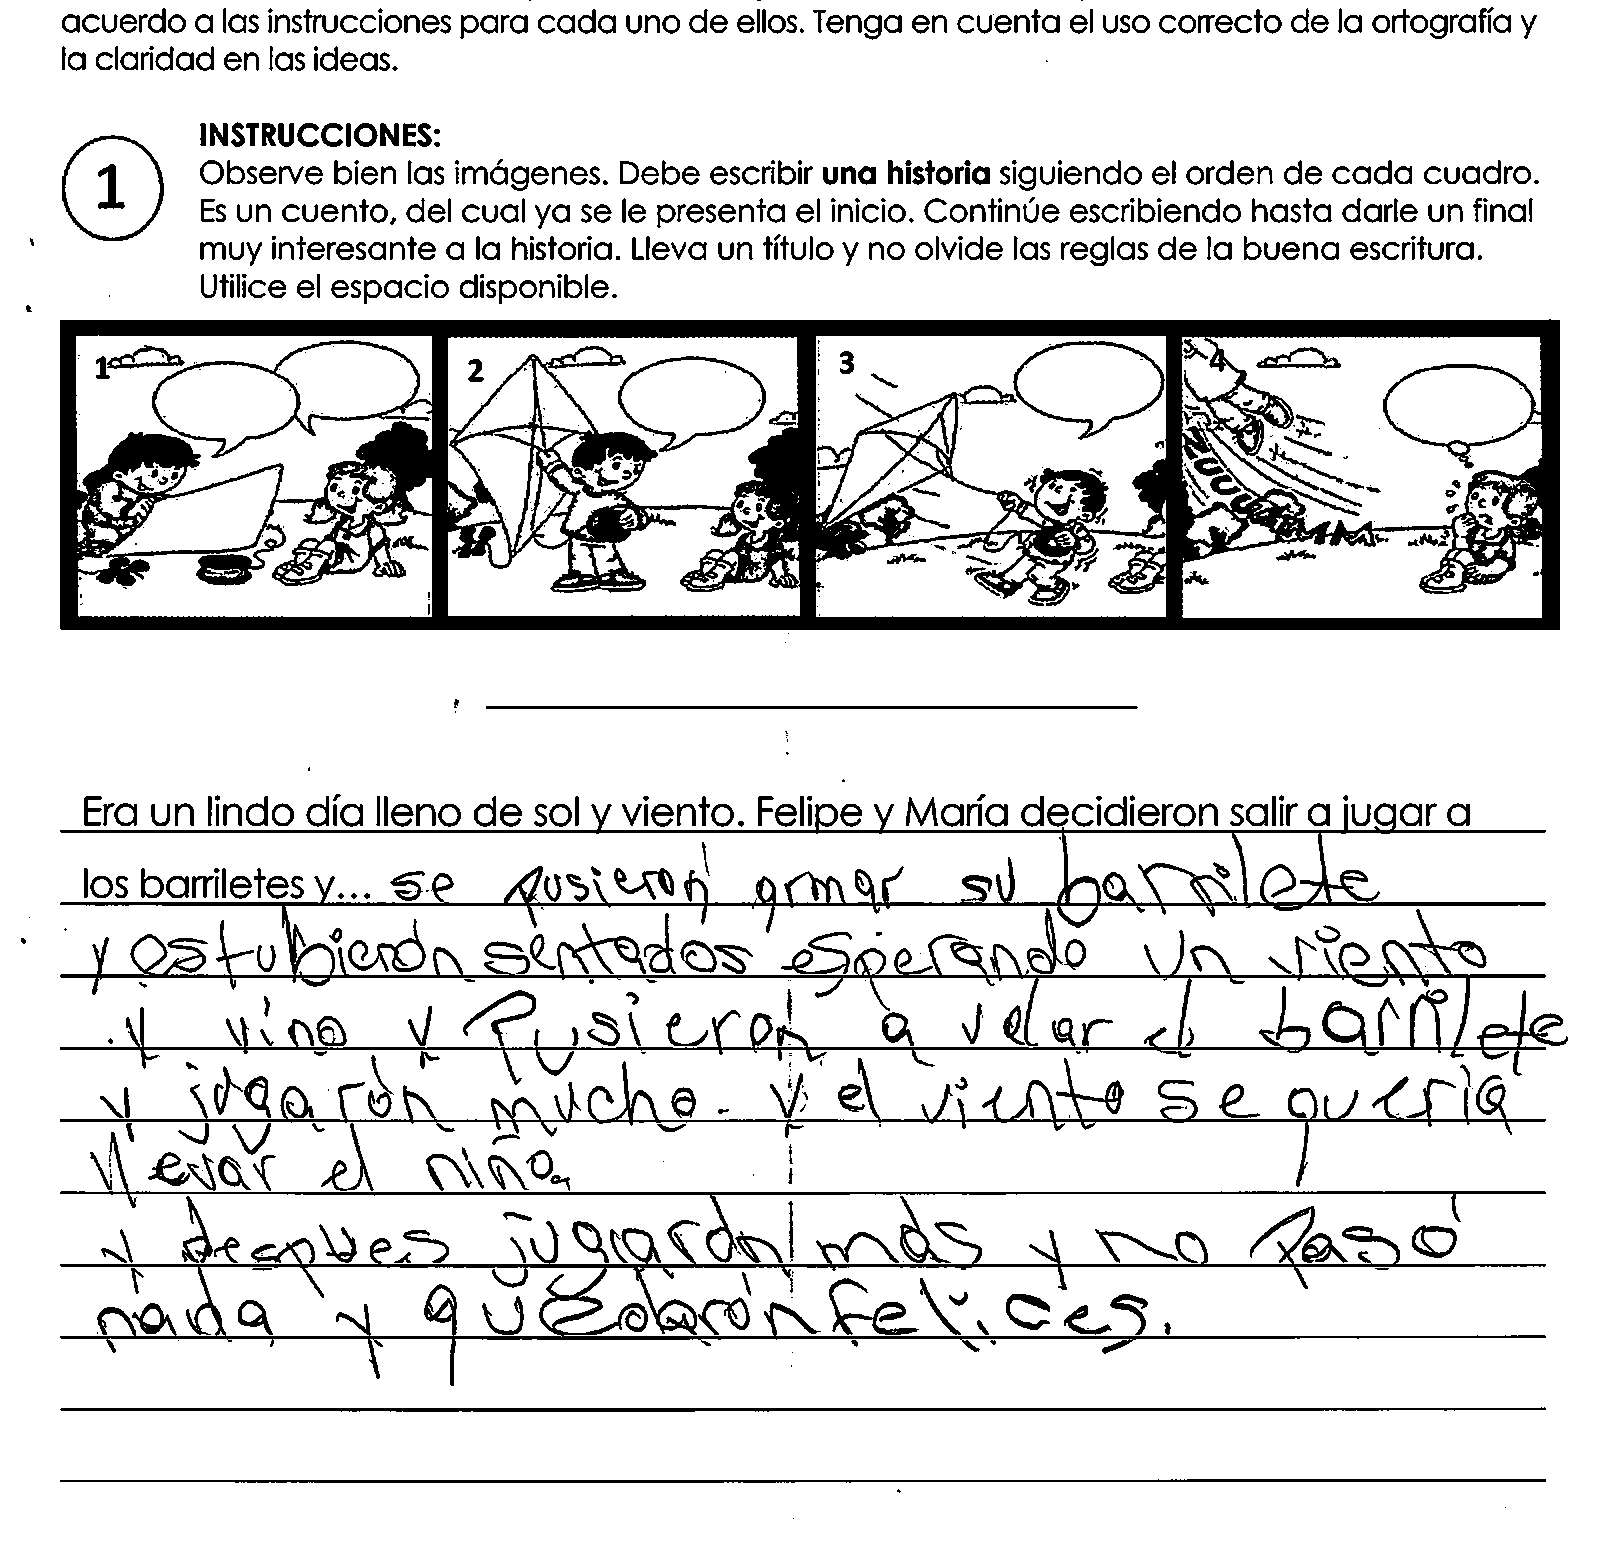 acuerdo a las instrucciones para cada uno de ellos. Tenga en cuenta el uso correcto de la ortografía y
la claridad en las ideas.
1
INSTRUCCIONES:
Observe bien las imágenes. Debe escribir una historia siguiendo el orden de cada cuadro.
Es un cuento, del cual ya se le presenta el inicio. Continúe escribiendo hasta darle un final
muy interesante a la historia. Lleva un título y no olvide las reglas de la buena escritura.
Utilice el espacio disponible.
1
2
3
4
Era un lindo día lleno de sol y viento. Felipe y María decidieron salir a jugar a
los barriletes y... se pusierón armar su barrilete
y estubierón sentados esperando un viento
y vino y Pusieron a volar el barrilete
y jugarón mucho. y el viento se queria
llevar el niño
y despues jugarón más y no Pasó
nada y quedarón felices.